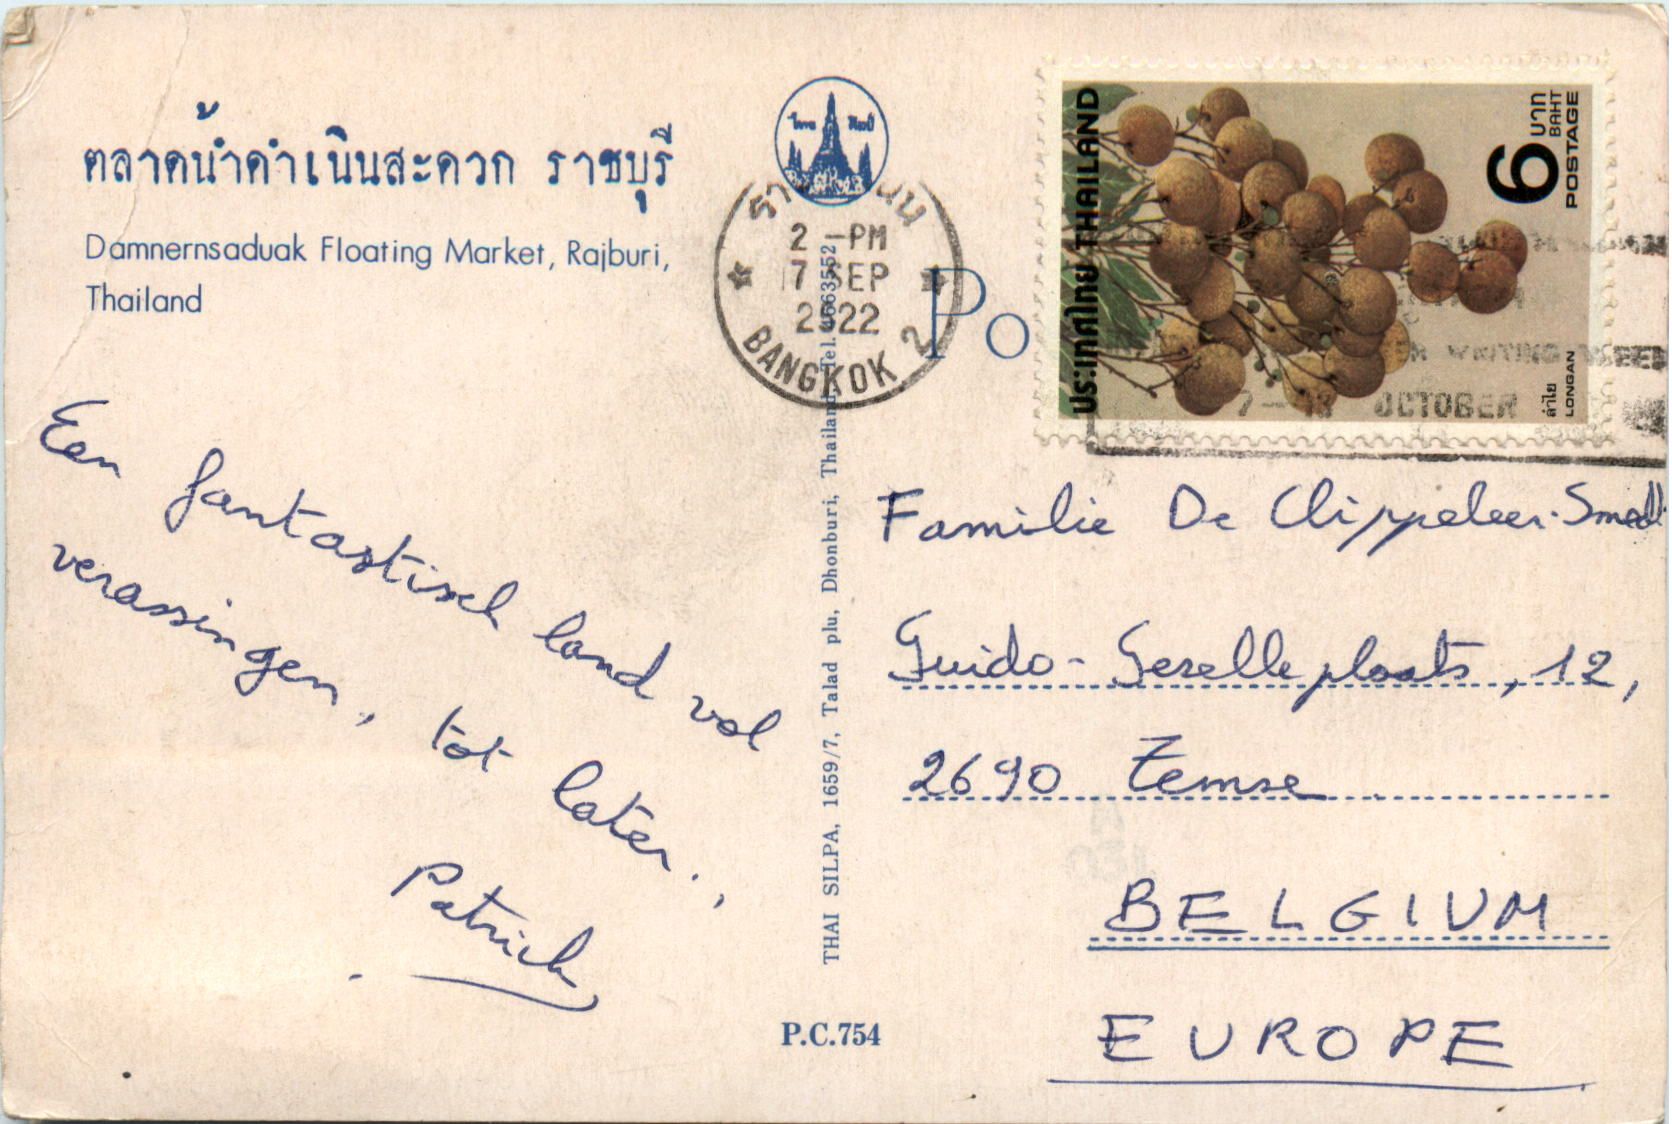 ตลาดน้ำดำเนินสะดวก ราชบุรี
Damnernsaduak Floating Market, Rajburi,
Thailand
Een fantastisch land vol
verassingen, tot later..,
Patrick
THAI SILPA, 1659/7, Talad plu, Dhonburi, Thailand, Tel. 4663552
P.C.754
2 -PM
17 SEP
2522
BANGKOK 2
Po
ประเทศไทย THAILAND
6 บาท
BAHT
POSTAGE
ลำไย
LONGAN
WRITING WEEK
7 - 13 OCTOBER
Familie De Clippeleer-
Guido-Gezelleplaats, 12,
2690 Temse
BELGIUM
EUROPE